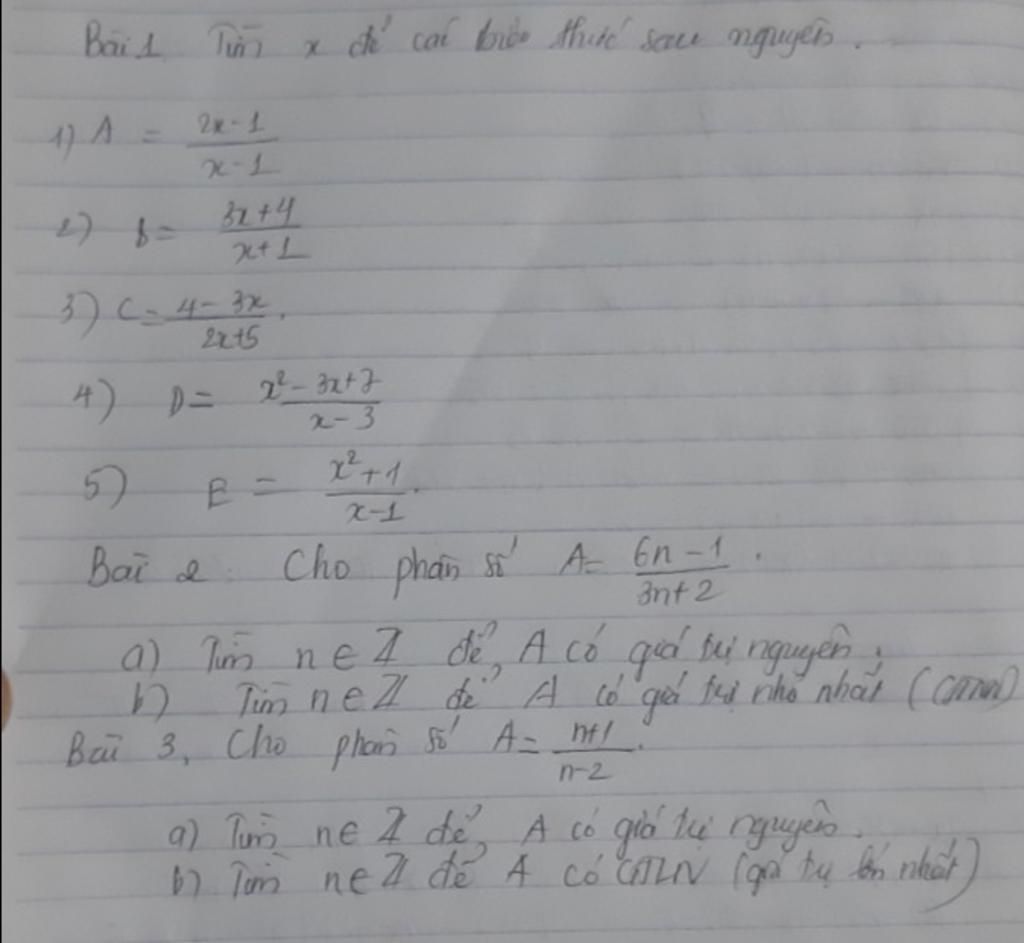 Bài 1. Tìm x để các biểu thức sau nguyên.
1) A = \frac{2x-1}{x-1}
2) B = \frac{3x+4}{x+1}
3) C = \frac{4-3x}{2x+5}.
4) D = \frac{x²-3x+7}{x-3}
5) E = \frac{x²+1}{x-1}.
Bài 2. Cho phân số A = \frac{6n-1}{3n+2}.
a) Tìm n ∈ Z để A có giá trị nguyên.
b) Tìm n ∈ Z để A có giá trị nhỏ nhất (GTNN)
Bài 3, Cho phân số A = \frac{n+1}{n-2}.
a) Tìm n ∈ Z để A có giá trị nguyên.
b) Tìm n ∈ Z để A có GTLN (giá trị lớn nhất)